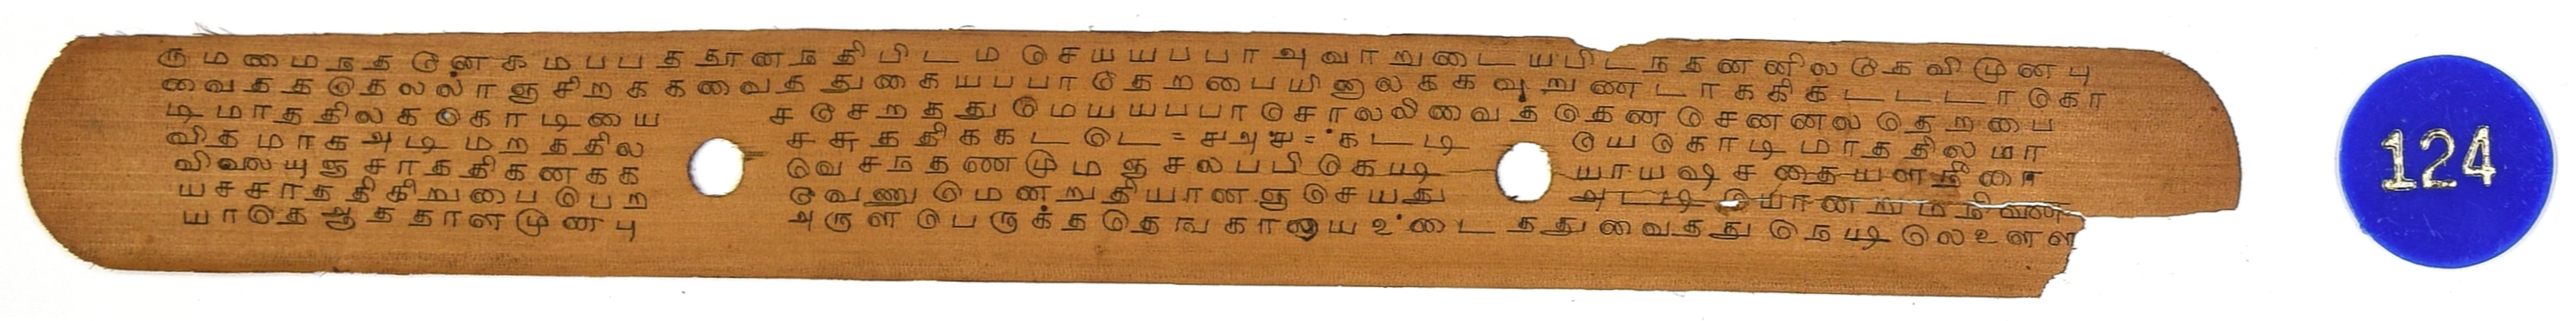 ரும மைநத னெகமபபததூனநதிபிட ம செயயபபா அவாறுடையபிடநதனனிலதெவிமுனபு
வைததெதலலாஞசிறககவைததுகையபபாதெறபையினுலககவுறுணடாககிகடடடாகொ
டிமாததிலககொடியை சசெறததுமெயயபபாசொலலிவைததெணசெனனலதெறபை
விதமாக அடிமறததில சுசுததிககடடெ = சுஅசு = கடடி யெகொடிமாததிலமா
விலையுஞசாததிகனகக வெசநதணமுமஞசலபபிகெயடி யாயஷசதையளநீரை
யசசாததிகிறுபைபெற வெணுமெனறுதியானஞசெயது அடடியொனறுமநிவண
யாதெஆததாளமுனபு அருளபெருக்ததெஙகாலுயஉடைததுவைததுநெயடிலெஉளள
124